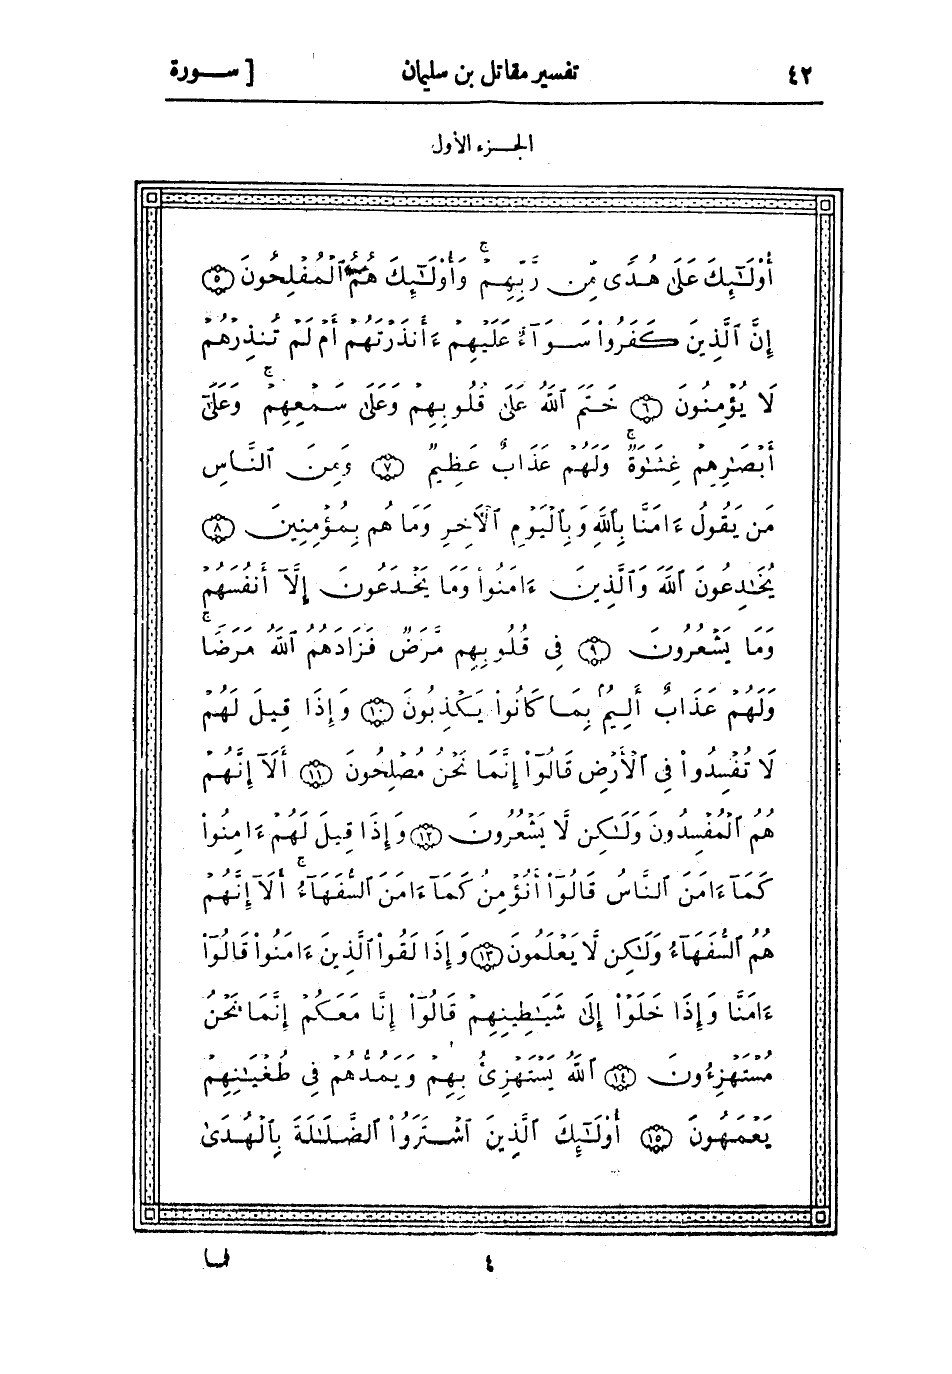 ٤٢ تفسير مقاتل بن سليمان [ ســورة
الجـزء الأول
أُوْلَـٰٓئِكَ عَلَىٰ هُدًى مِّن رَّبِّهِمْ ۖ وَأُوْلَـٰٓئِكَ هُمُ ٱلْمُفْلِحُونَ ﴿٥﴾
إِنَّ ٱلَّذِينَ كَفَرُوا۟ سَوَآءٌ عَلَيْهِمْ ءَأَنذَرْتَهُمْ أَمْ لَمْ تُنذِرْهُمْ
لَا يُؤْمِنُونَ ﴿٦﴾ خَتَمَ ٱللَّهُ عَلَىٰ قُلُوبِهِمْ وَعَلَىٰ سَمْعِهِمْ ۚ وَعَلَىٰٓ
أَبْصَـٰرِهِمْ غِشَـٰوَةٌ ۚ وَلَهُمْ عَذَابٌ عَظِيمٌ ﴿٧﴾ وَمِنَ ٱلنَّاسِ
مَن يَقُولُ ءَامَنَّا بِٱللَّهِ وَبِٱلْيَوْمِ ٱلْأَخِرِ وَمَا هُم بِمُؤْمِنِينَ ﴿٨﴾
يُخَـٰدِعُونَ ٱللَّهَ وَٱلَّذِينَ ءَامَنُوا۟ وَمَا يَخْدَعُونَ إِلَّآ أَنفُسَهُمْ
وَمَا يَشْعُرُونَ ﴿٩﴾ فِى قُلُوبِهِم مَّرَضٌ فَزَادَهُمُ ٱللَّهُ مَرَضًا ۚ
وَلَهُمْ عَذَابٌ أَلِيمٌۢ بِمَا كَانُوا۟ يَكْذِبُونَ ﴿١٠﴾ وَإِذَا قِيلَ لَهُمْ
لَا تُفْسِدُوا۟ فِى ٱلْأَرْضِ قَالُوٓا۟ إِنَّمَا نَحْنُ مُصْلِحُونَ ﴿١١﴾ أَلَآ إِنَّهُمْ
هُمُ ٱلْمُفْسِدُونَ وَلَـٰكِن لَّا يَشْعُرُونَ ﴿١٢﴾ وَإِذَا قِيلَ لَهُمْ ءَامِنُوا۟
كَمَآ ءَامَنَ ٱلنَّاسُ قَالُوٓا۟ أَنُؤْمِنُ كَمَآ ءَامَنَ ٱلسُّفَهَآءُ ۚ أَلَآ إِنَّهُمْ
هُمُ ٱلسُّفَهَآءُ وَلَـٰكِن لَّا يَعْلَمُونَ ﴿١٣﴾ وَإِذَا لَقُوا۟ ٱلَّذِينَ ءَامَنُوا۟ قَالُوٓا۟
ءَامَنَّا وَإِذَا خَلَوْا۟ إِلَىٰ شَيَـٰطِينِهِمْ قَالُوٓا۟ إِنَّا مَعَكُمْ إِنَّمَا نَحْنُ
مُسْتَهْزِءُونَ ﴿١٤﴾ ٱللَّهُ يَسْتَهْزِئُ بِهِمْ وَيَمُدُّهُمْ فِى طُغْيَـٰنِهِمْ
يَعْمَهُونَ ﴿١٥﴾ أُوْلَـٰٓئِكَ ٱلَّذِينَ ٱشْتَرَوُا۟ ٱلضَّلَـٰلَةَ بِٱلْهُدَىٰ
٤ فما